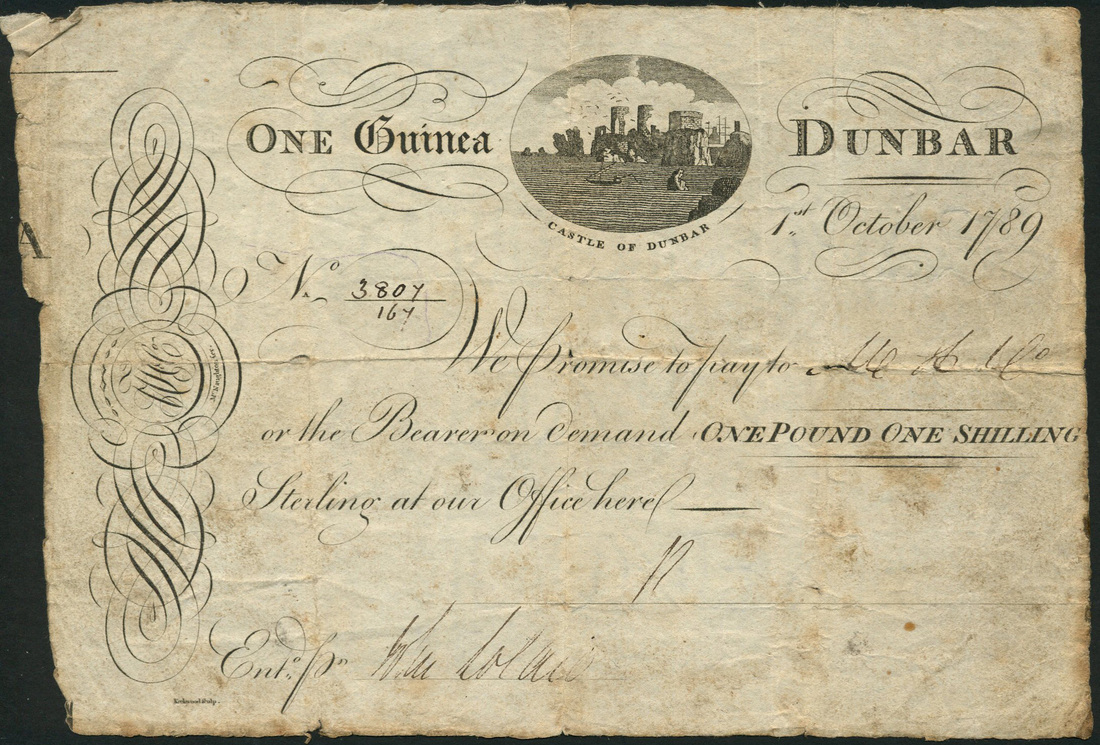 ONE Guinea
DUNBAR
CASTLE OF DUNBAR
1st October 1789
A
No 3807
167
We Promise to pay to
or the Bearer on demand ONE POUND ONE SHILLING
Sterling at our Office here
Entd. pr. Wm
Kirkwood Sculp.